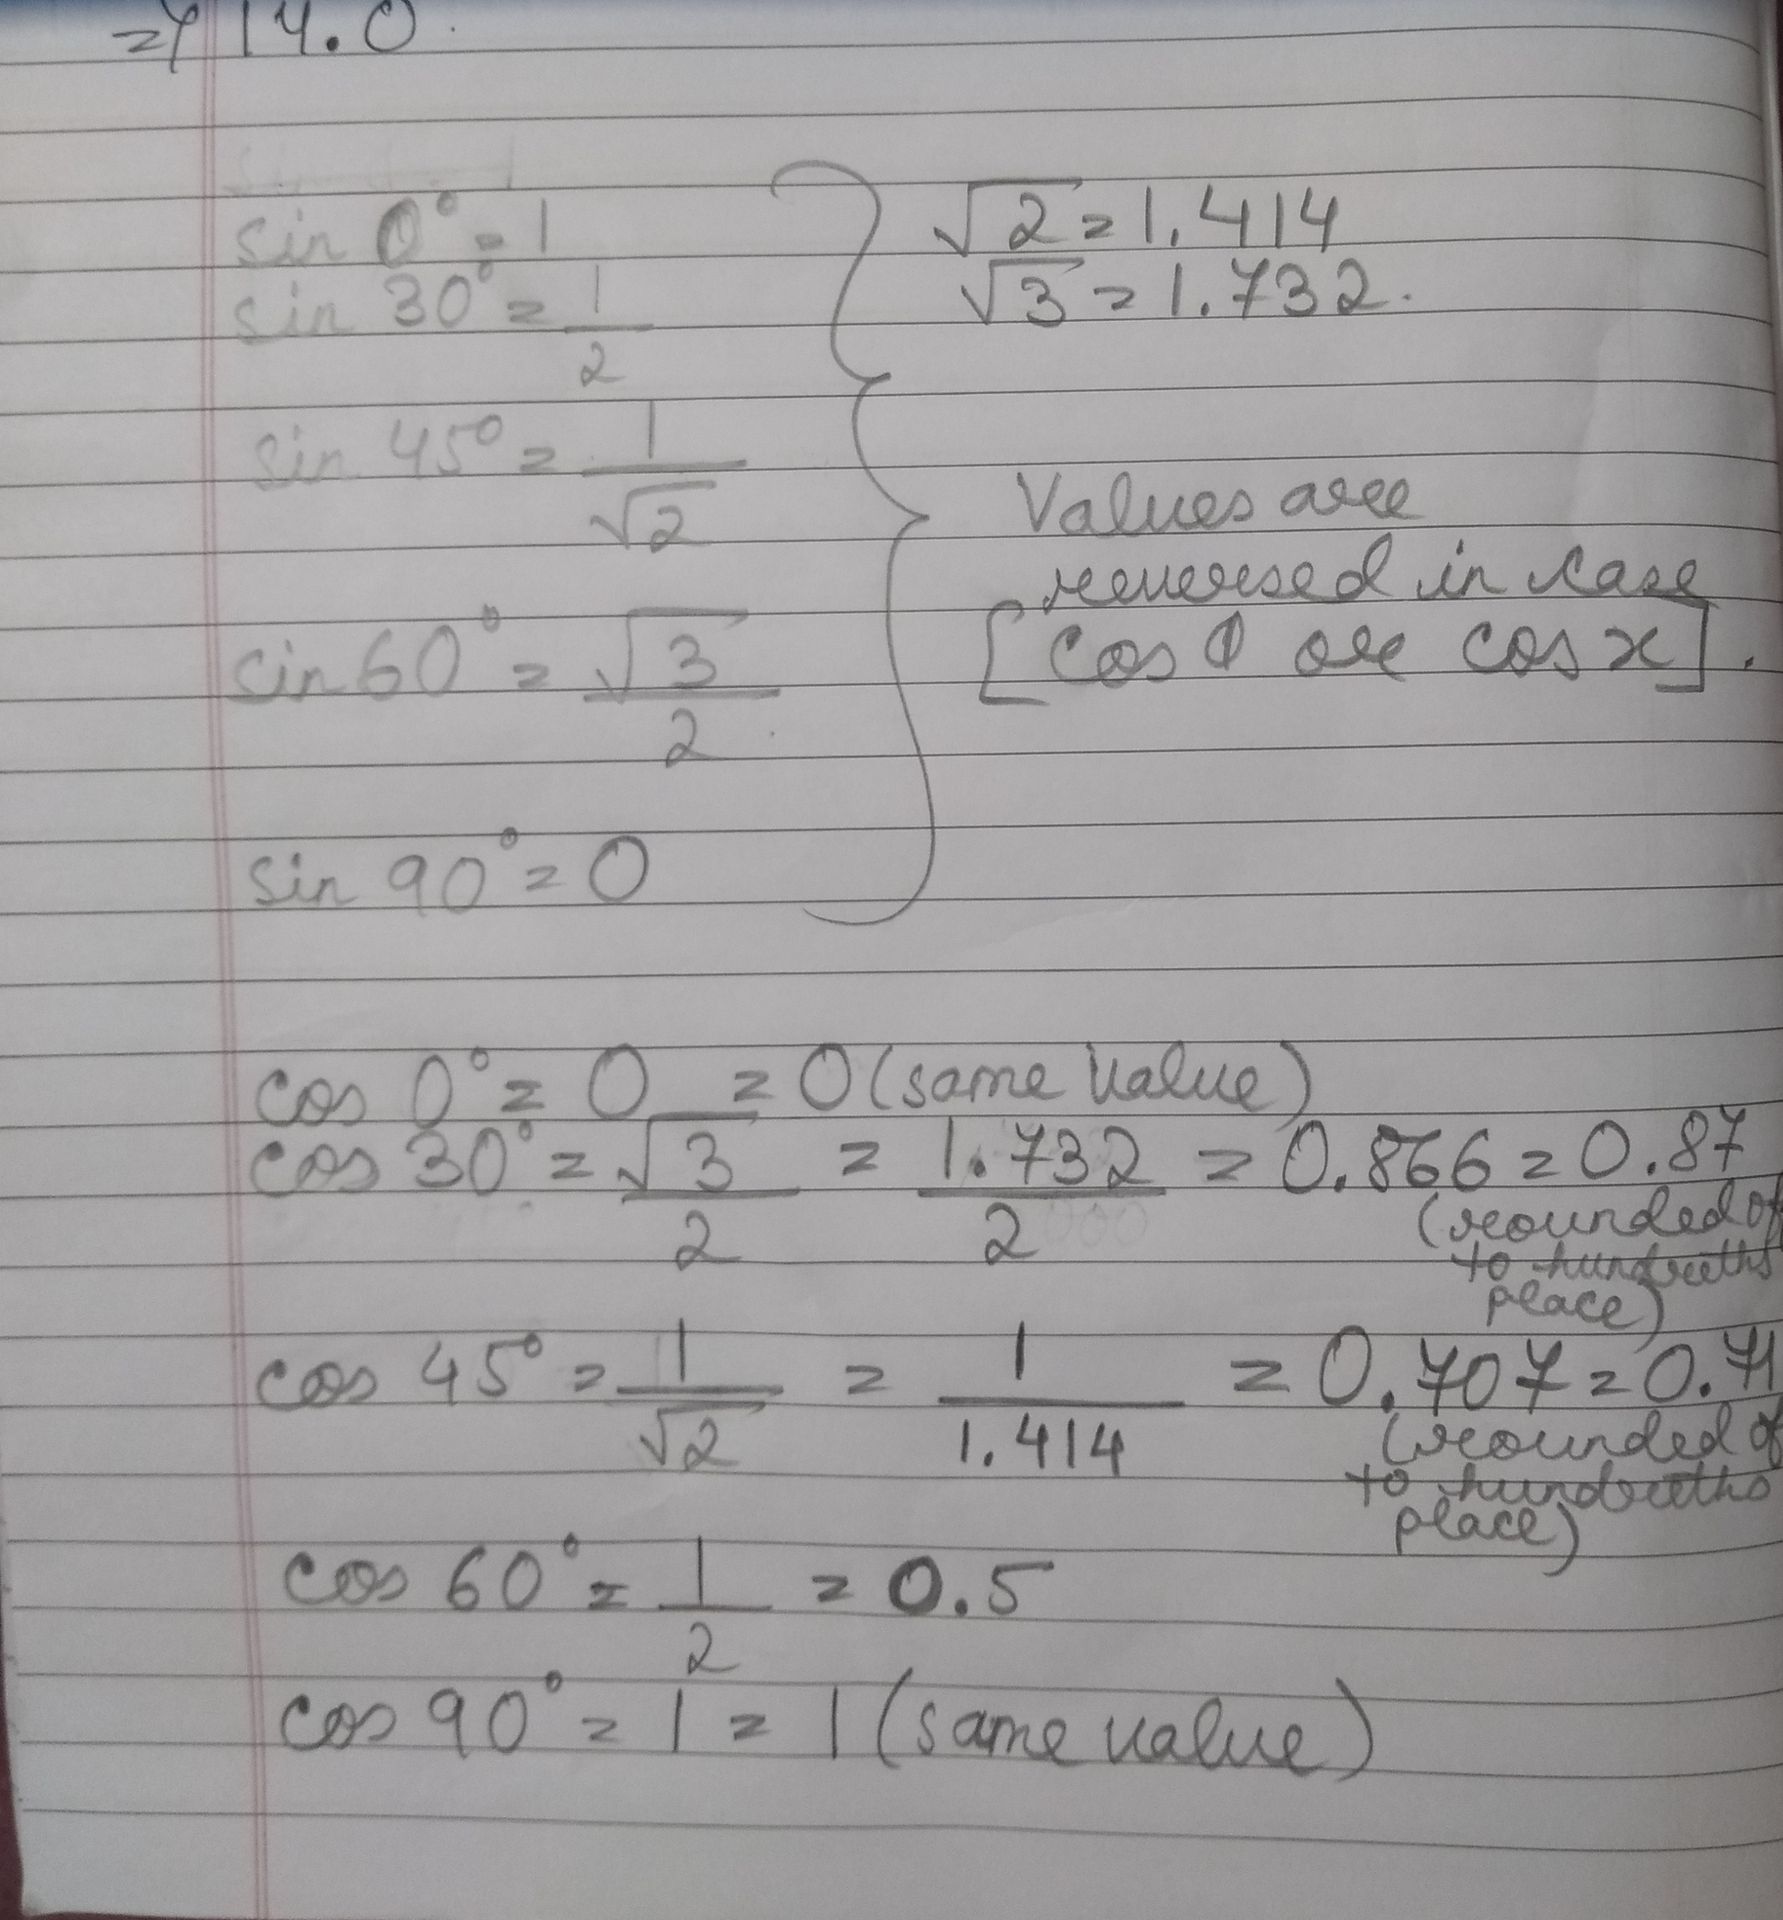 => 14.0.
sin 0° = 1
sin 30° = 1/2
sin 45° = 1/√2
sin 60° = √3/2
sin 90° = 0
√2 = 1.414
√3 = 1.732.
Values are
reversed in case
[cos θ or cos x].
cos 0° = 0 = 0 (same value)
cos 30° = √3/2 = 1.732/2 = 0.866 = 0.87
(rounded of
to hundreths
place)
cos 45° = 1/√2 = 1/1.414 = 0.707 = 0.71
(rounded of
to hundreths
place)
cos 60° = 1/2 = 0.5
cos 90° = 1 = 1 (same value)